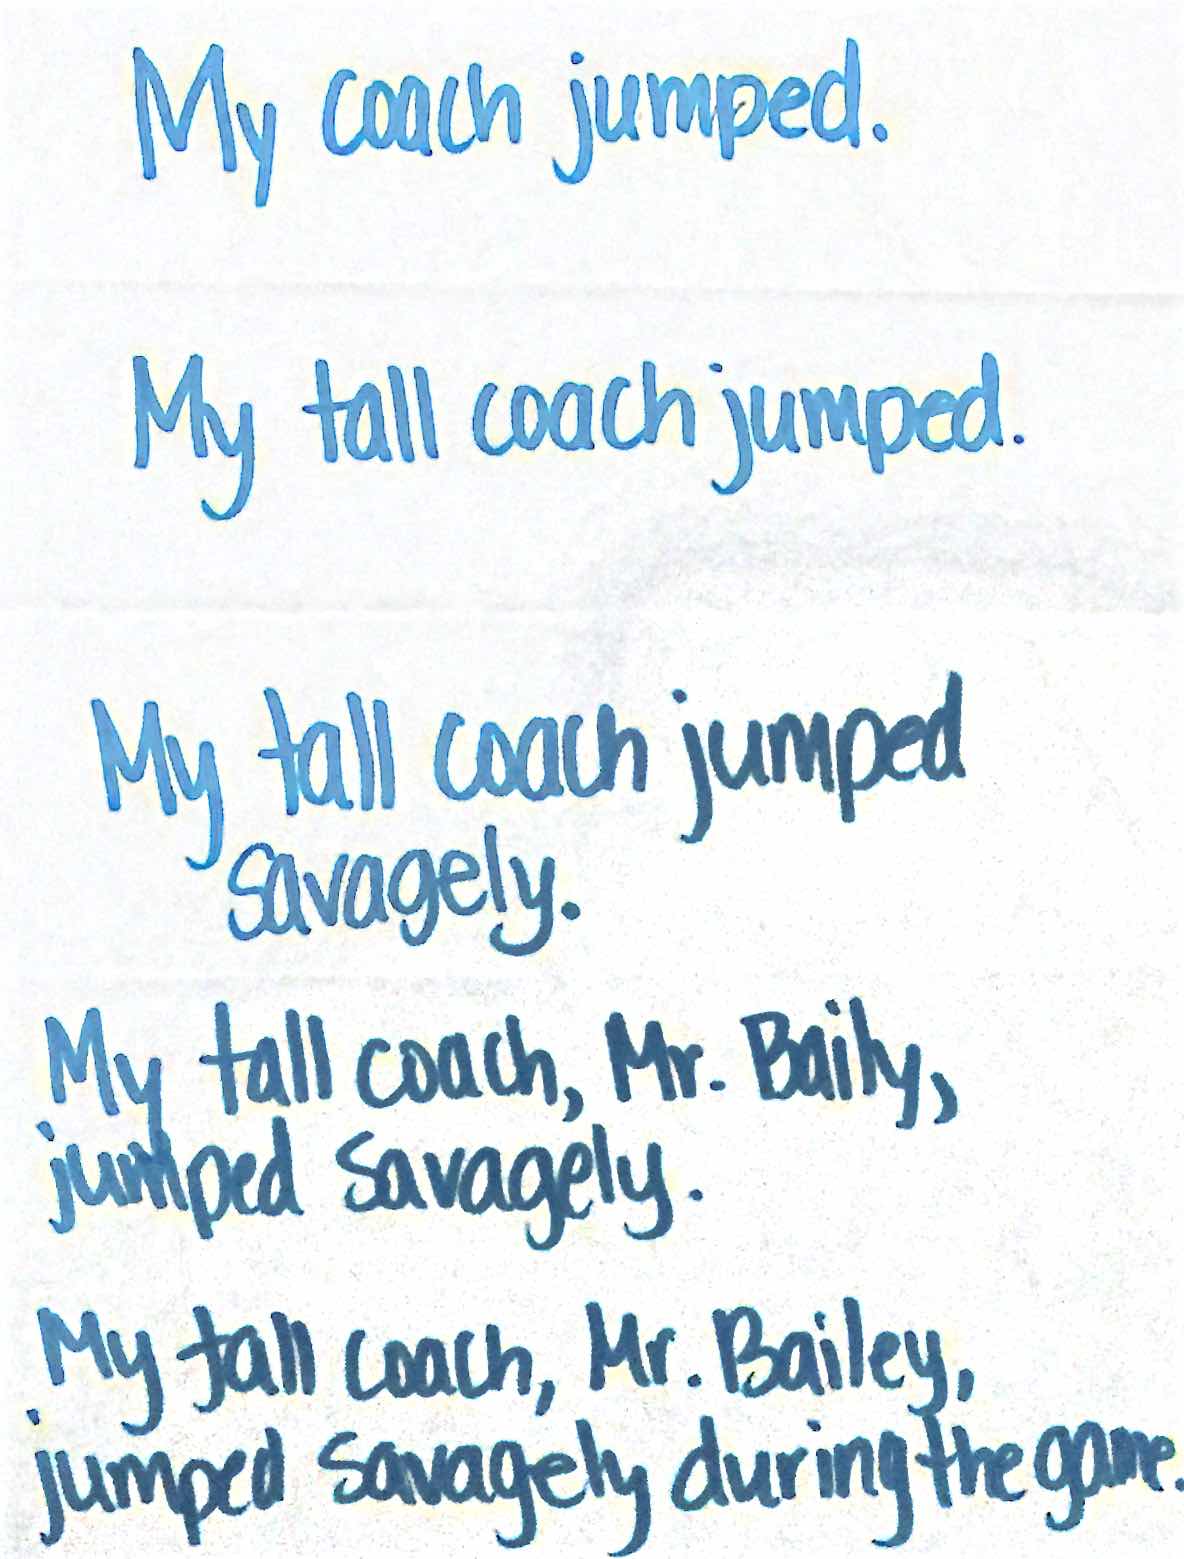 My coach jumped.
My tall coach jumped.
My tall coach jumped
savagely.
My tall coach, Mr. Baily,
jumped savagely.
My tall coach, Mr. Bailey,
jumped savagely during the game.